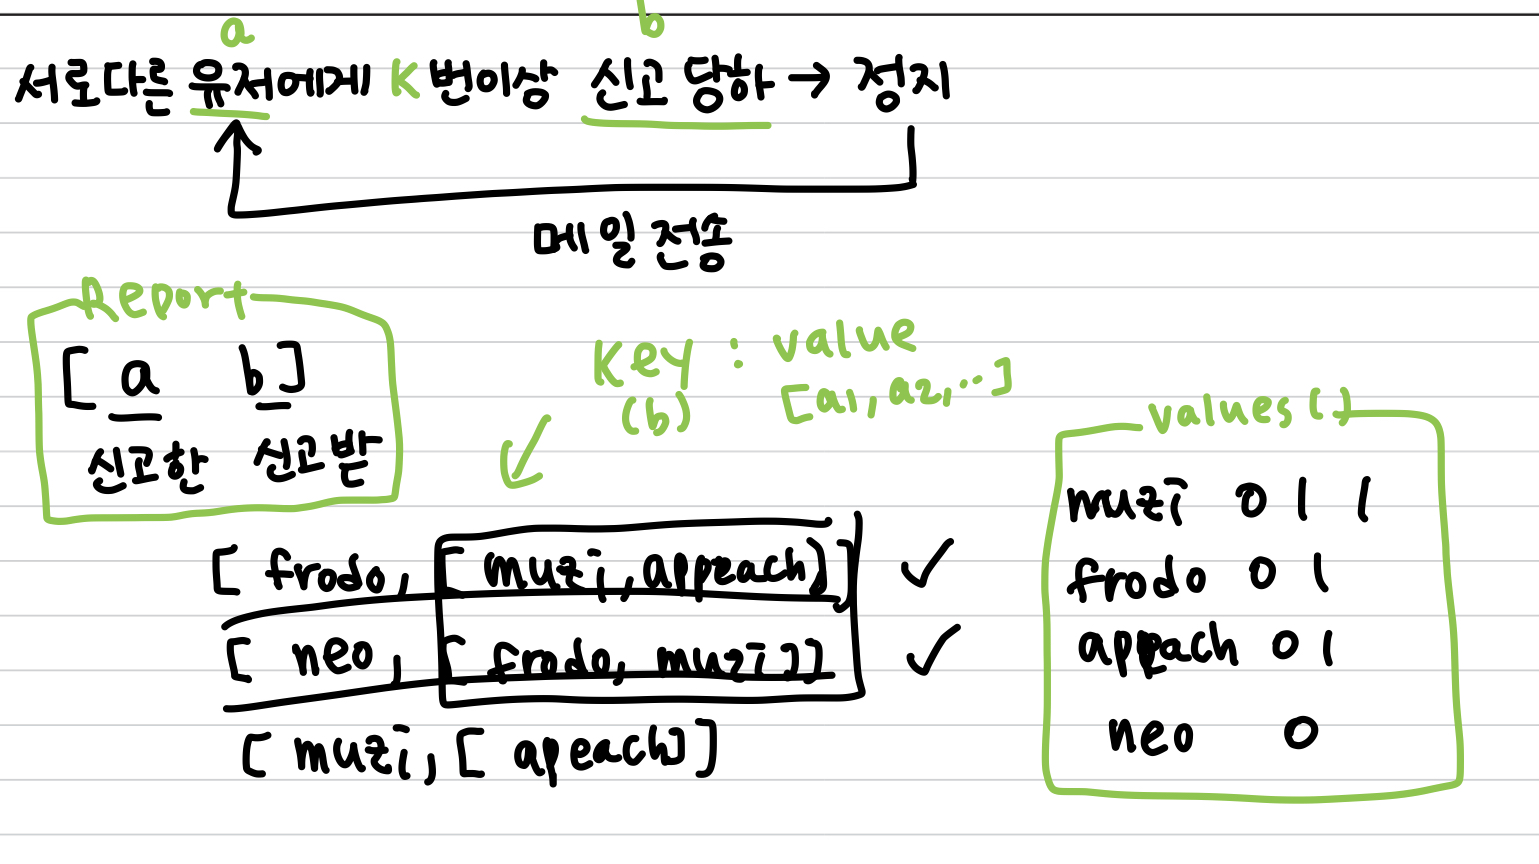 a b
서로다른 유저에게 K번이상 신고 당하 → 정지
메일 전송
Report
[ a b ]
신고한 신고받
Key : value
(b) [a1, a2, ...]
values()
[ frodo, [ muzi, appeach ] ] ✓
[ neo, [ frodo, muzi ] ] ✓
[ muzi, [ apeach ] ]
muzi 0 1 1
frodo 0 1
appeach 0 1
neo 0